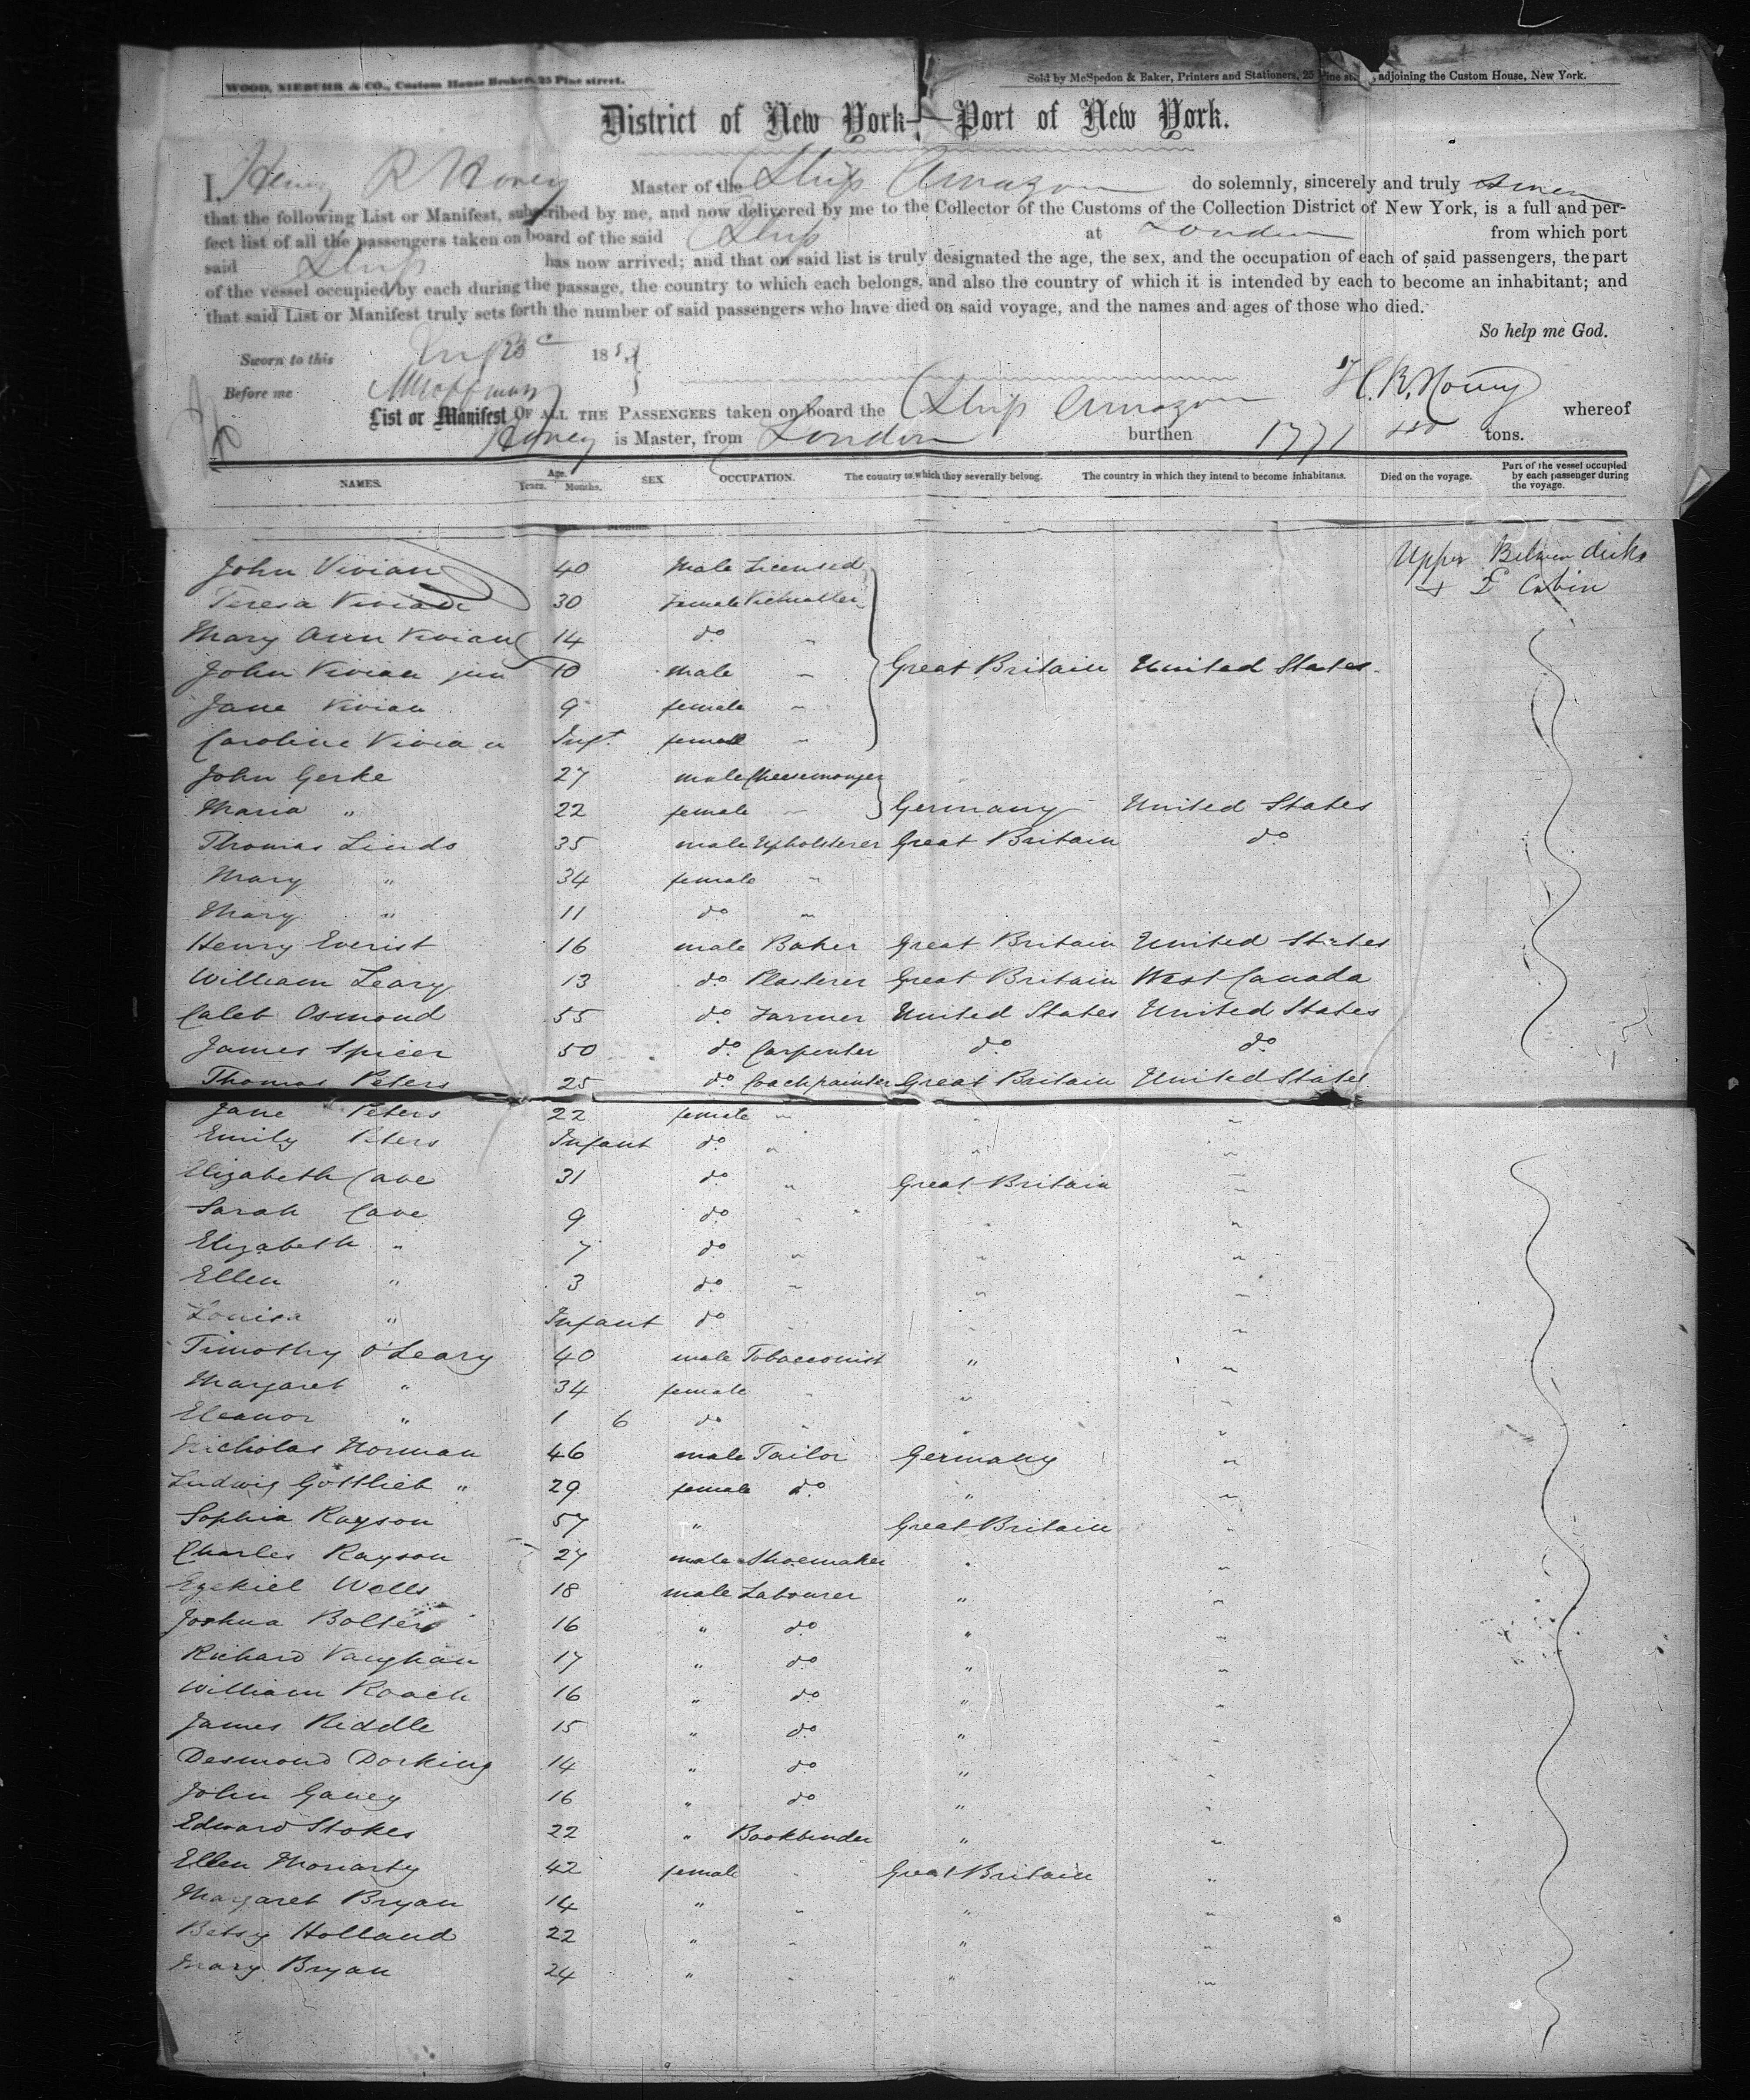 WOOD, NIEBUHR & CO., Custom House Brokers, 25 Pine street.
Sold by McSpedon & Baker, Printers and Stationers, 25 Pine st., adjoining the Custom House, New York.
District of New York—Port of New York.
I, Henry R Hovey Master of the Ship Amazon do solemnly, sincerely and truly swear
that the following List or Manifest, subscribed by me, and now delivered by me to the Collector of the Customs of the Collection District of New York, is a full and per-
fect list of all the passengers taken on board of the said Ship at London from which port
said Ship has now arrived; and that on said list is truly designated the age, the sex, and the occupation of each of said passengers, the part
of the vessel occupied by each during the passage, the country to which each belongs, and also the country of which it is intended by each to become an inhabitant; and
that said List or Manifest truly sets forth the number of said passengers who have died on said voyage, and the names and ages of those who died.
So help me God.
Sworn to this 185
Before me H. R. Hovey
List or Manifest OF ALL THE PASSENGERS taken on board the Ship Amazon whereof
Hovey is Master, from London burthen 1771 tons.
NAMES. Age. Years. Months. SEX OCCUPATION. The country to which they severally belong. The country in which they intend to become inhabitants. Died on the voyage. Part of the vessel occupied by each passenger during the voyage.
John Vivian 40 Male Licensed Upper Between decks
Teresa Vivian 30 female Victualler & 2 Cabin
Mary Ann Vivian 14 do "
John Vivian jun 10 male " Great Britain United States
Jane Vivian 9 female "
Caroline Vivian Inft. female "
John Gerke 27 male Cheesemonger
Maria " 22 female " Germany United States
Thomas Linds 35 male Upholsterer Great Britain do
Mary " 34 female "
Mary " 11 do "
Henry Everist 16 male Baker Great Britain United States
William Leary 13 do Plasterer Great Britain West Canada
Caleb Osmond 55 do Farmer United States United States
James Spicer 50 do Carpenter do do
Thomas Peters 25 do Coachpainter Great Britain United States
Jane Peters 22 female " " "
Emily Peters Infant do " " "
Elizabeth Cave 31 do " Great Britain "
Sarah Cave 9 do " " "
Elizabeth " 7 do " " "
Ellen " 3 do " " "
Louisa " Infant do " " "
Timothy O'Leary 40 male Tobacconist " "
Margaret " 34 female " " "
Eleanor " 1 6 do " " "
Nicholas Horman 46 male Tailor Germany "
Ludwig Gottlieb " 29 female do " "
Sophia Rayson 57 " Great Britain "
Charles Rayson 27 male Shoemaker " "
Ezekiel Wells 18 male Labourer " "
Joshua Bolters 16 " do " "
Richard Vaughan 17 " do " "
William Roach 16 " do " "
James Riddle 15 " do " "
Desmond Dorking 14 " do " "
John Ganey 16 " do " "
Edward Stokes 22 " Bookbinder " "
Ellen Moriarty 42 female " Great Britain "
Margaret Bryan 14 " " " "
Betsy Holland 22 " " " "
Mary Bryan 24 " " " "